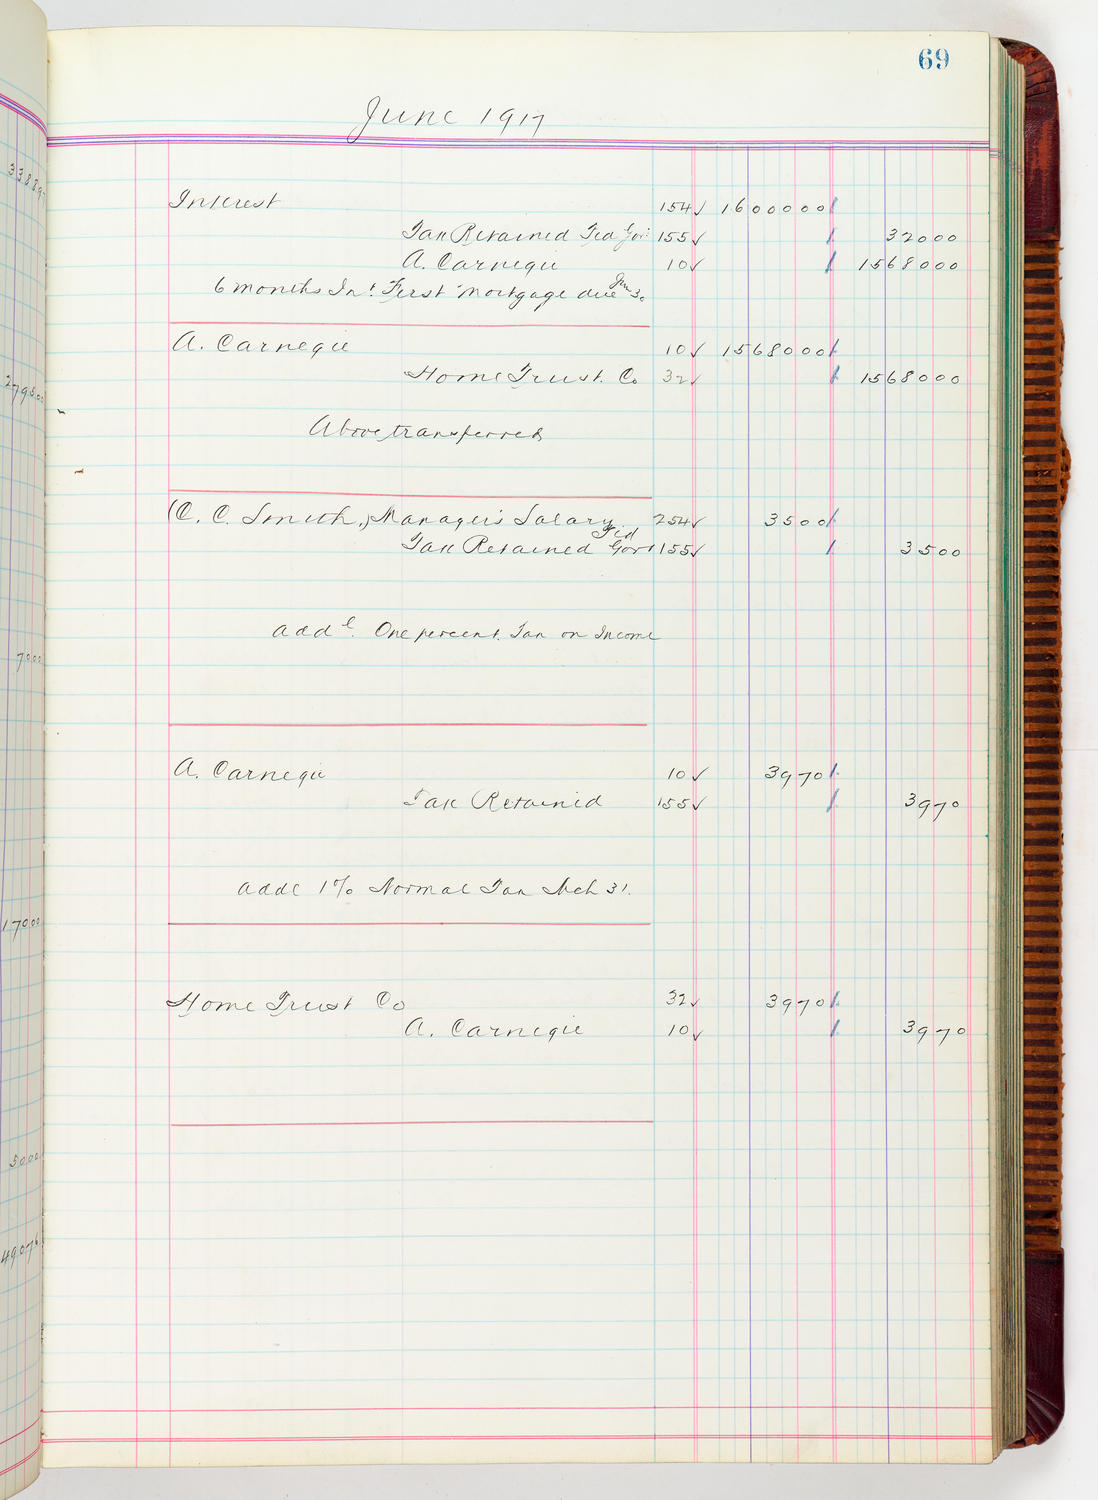 69
June 1917
33889
Interest 154✓ 16000 00
Tax Retained Fed Gov: 155✓ 320 00
A. Carnegie 10✓ 15680 00
6 months Int. First Mortgage due June 30
A. Carnegie 10✓ 15680 00
Home Trust Co 32✓ 15680 00
279500
Above transferred
(C. C. Smith,) Manager's Salary 254✓ 35 00
Tax Retained Fed Govt 155✓ 35 00
addl. One percent. Tax on Income
7000
A. Carnegie 10✓ 39 70
Tax Retained 155✓ 39 70
addl 1% Normal Tax Mch 31.
17000
Home Trust Co 32✓ 39 70
A. Carnegie 10✓ 39 70
5000
49076